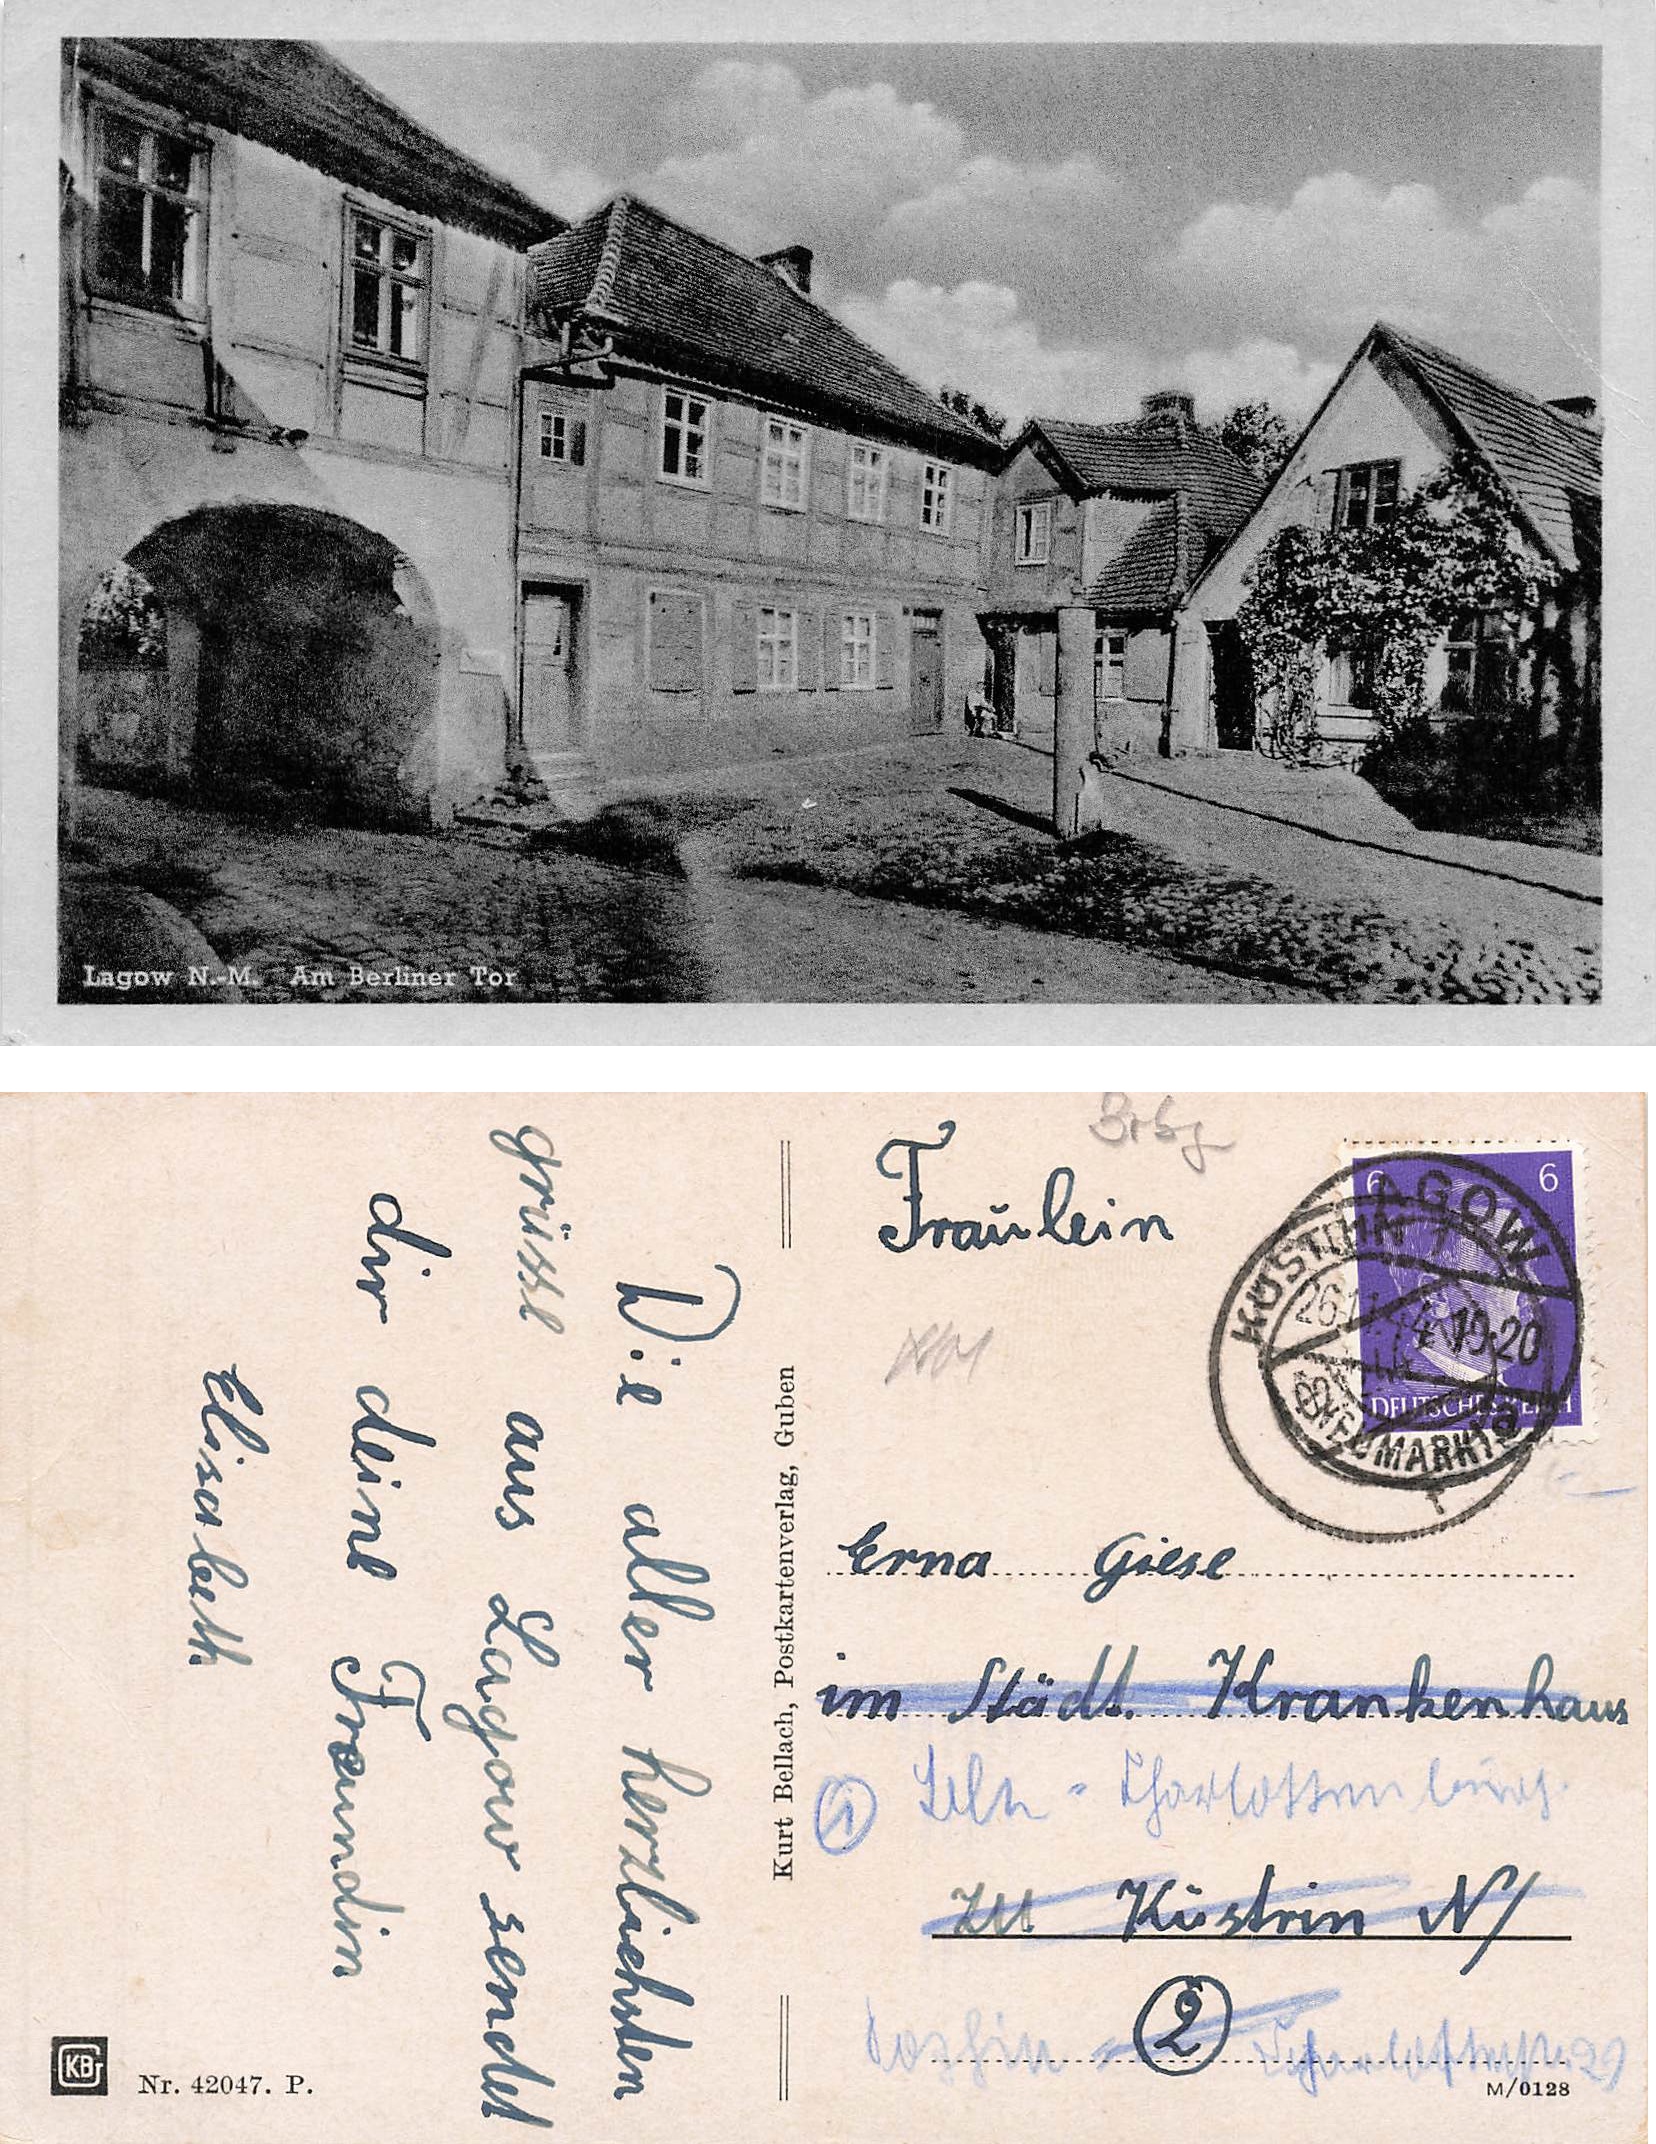 Lagow N.-M. Am Berliner Tor
Die aller herzlichsten
grüsse aus Lagow sendet
dir deine Freundin
Elisabeth
Kurt Bellach, Postkartenverlag, Guben
KB
Nr. 42047. P.
Fräulein
6 6
DEUTSCHES REICH
LAGOW
KÜSTRIN 1
19-20
Erna Giese
im Städt. Krankenhaus
1
Charlottenburg
zu Küstrin N/
2
29
M/0128